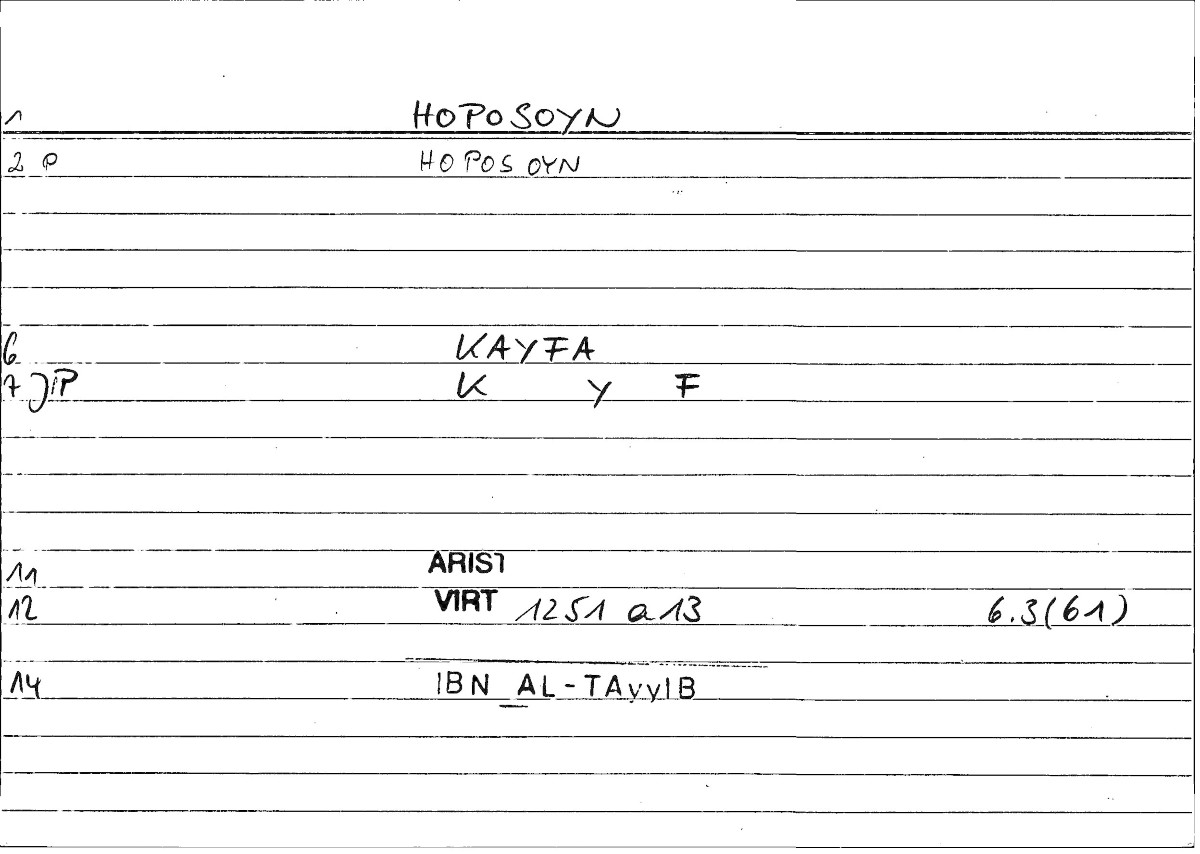 1 HOPOSOYN
2 P HOPOSOYN
6 KAYFA
7 JP K Y F
11 ARIST
12 VIRT 1251 a 13 6.3(61)
14 IBN AL-TAyyIB